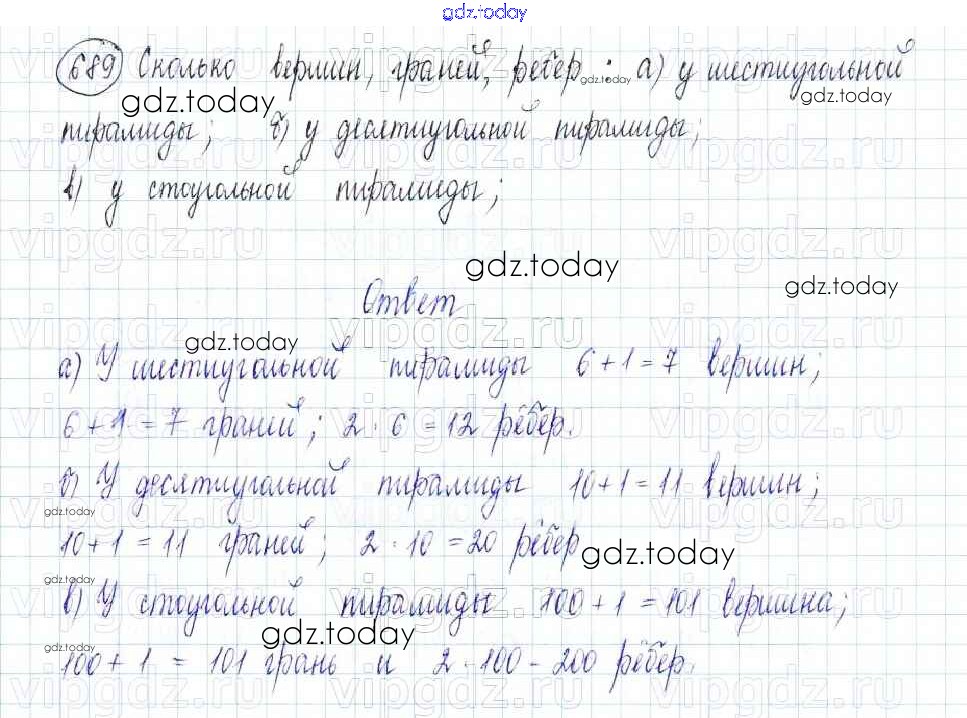 gdz.today
689 Сколько вершин, граней, рёбер : а) у шестиугольной
gdz.today
gdz.today
gdz.today
пирамиды; б) у десятиугольной пирамиды;
в) у стоугольной пирамиды;
vipgdz.ru vipgdz.ru vipgdz.ru
gdz.today
gdz.today
Ответ
gdz.today
а) У шестиугольной пирамиды 6+1=7 вершин;
6+1=7 граней; 2·6=12 рёбер.
б) У десятиугольной пирамиды 10+1=11 вершин;
gdz.today
10+1=11 граней; 2·10=20 рёбер
gdz.today
gdz.today
в) У стоугольной пирамиды 100+1=101 вершина;
gdz.today
gdz.today
100+1 = 101 грань и 2·100-200 рёбер.